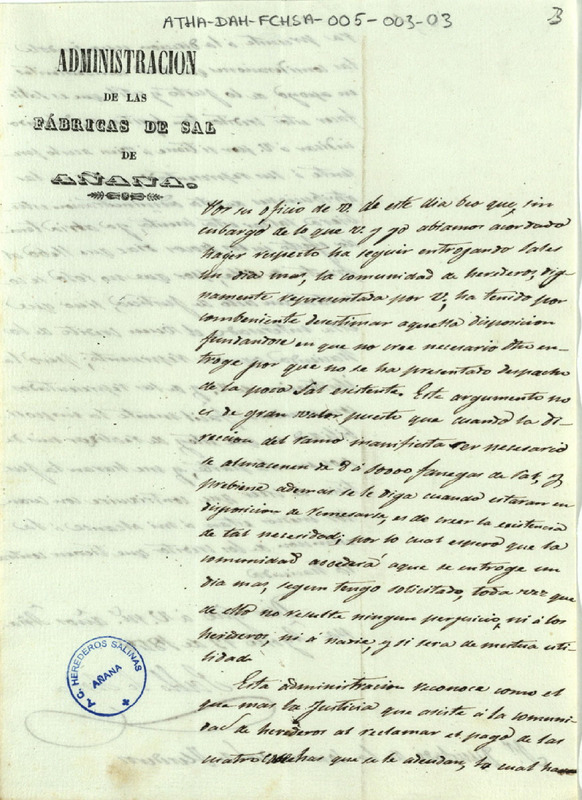 ATHA-DAH-FCHSA-005-003-03
3
ADMINISTRACION
DE LAS
FÁBRICAS DE SAL
DE
AÑANA.
Por su oficio de V. de este dia veo que, sin
embargo de lo que V. y yo abiamos acordado
hayer respecto ha seguir entrogando sales
un dia mas, la comunidad de herederos, dig-
namente representada por V, ha tenido por
combeniente desestimar aquella disposicion
fundandose en que no cree necesario otro en-
troge por que no se ha presentado despacho
de la poca Sal esistente. Este argumento no
es de gran valor puesto que cuando la Di-
reccion del ramo manifiesta ser nesesario
se almasenen de 8 á 10000 fanegas de Sal, y
prebiene ademas se le diga cuando estaran en
disposicion de remesarse, es de creer la esistencia
de tal necesidad; por lo cual espero que la
comunidad accederá aque se entroge un
dia mas, segun tengo solicitado, toda vez que
de ello no resulte ningun perjuicio, ni á los
herederos, ni á nadie, y si sera de mutua uti-
lidad.
Esta administracion reconoce como el
que mas la Justicia que asiste á la comuni-
dad de herederos al reclamar el pago de las
cuatro que se le adeudan, la cual
A. C. HEREDEROS SALINAS
AÑANA